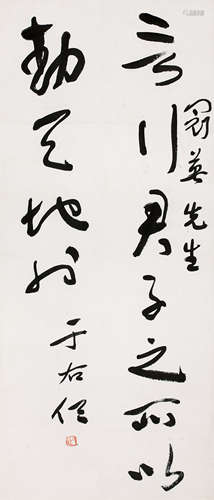 英先生
言行君子之所以
動天地也
于右任